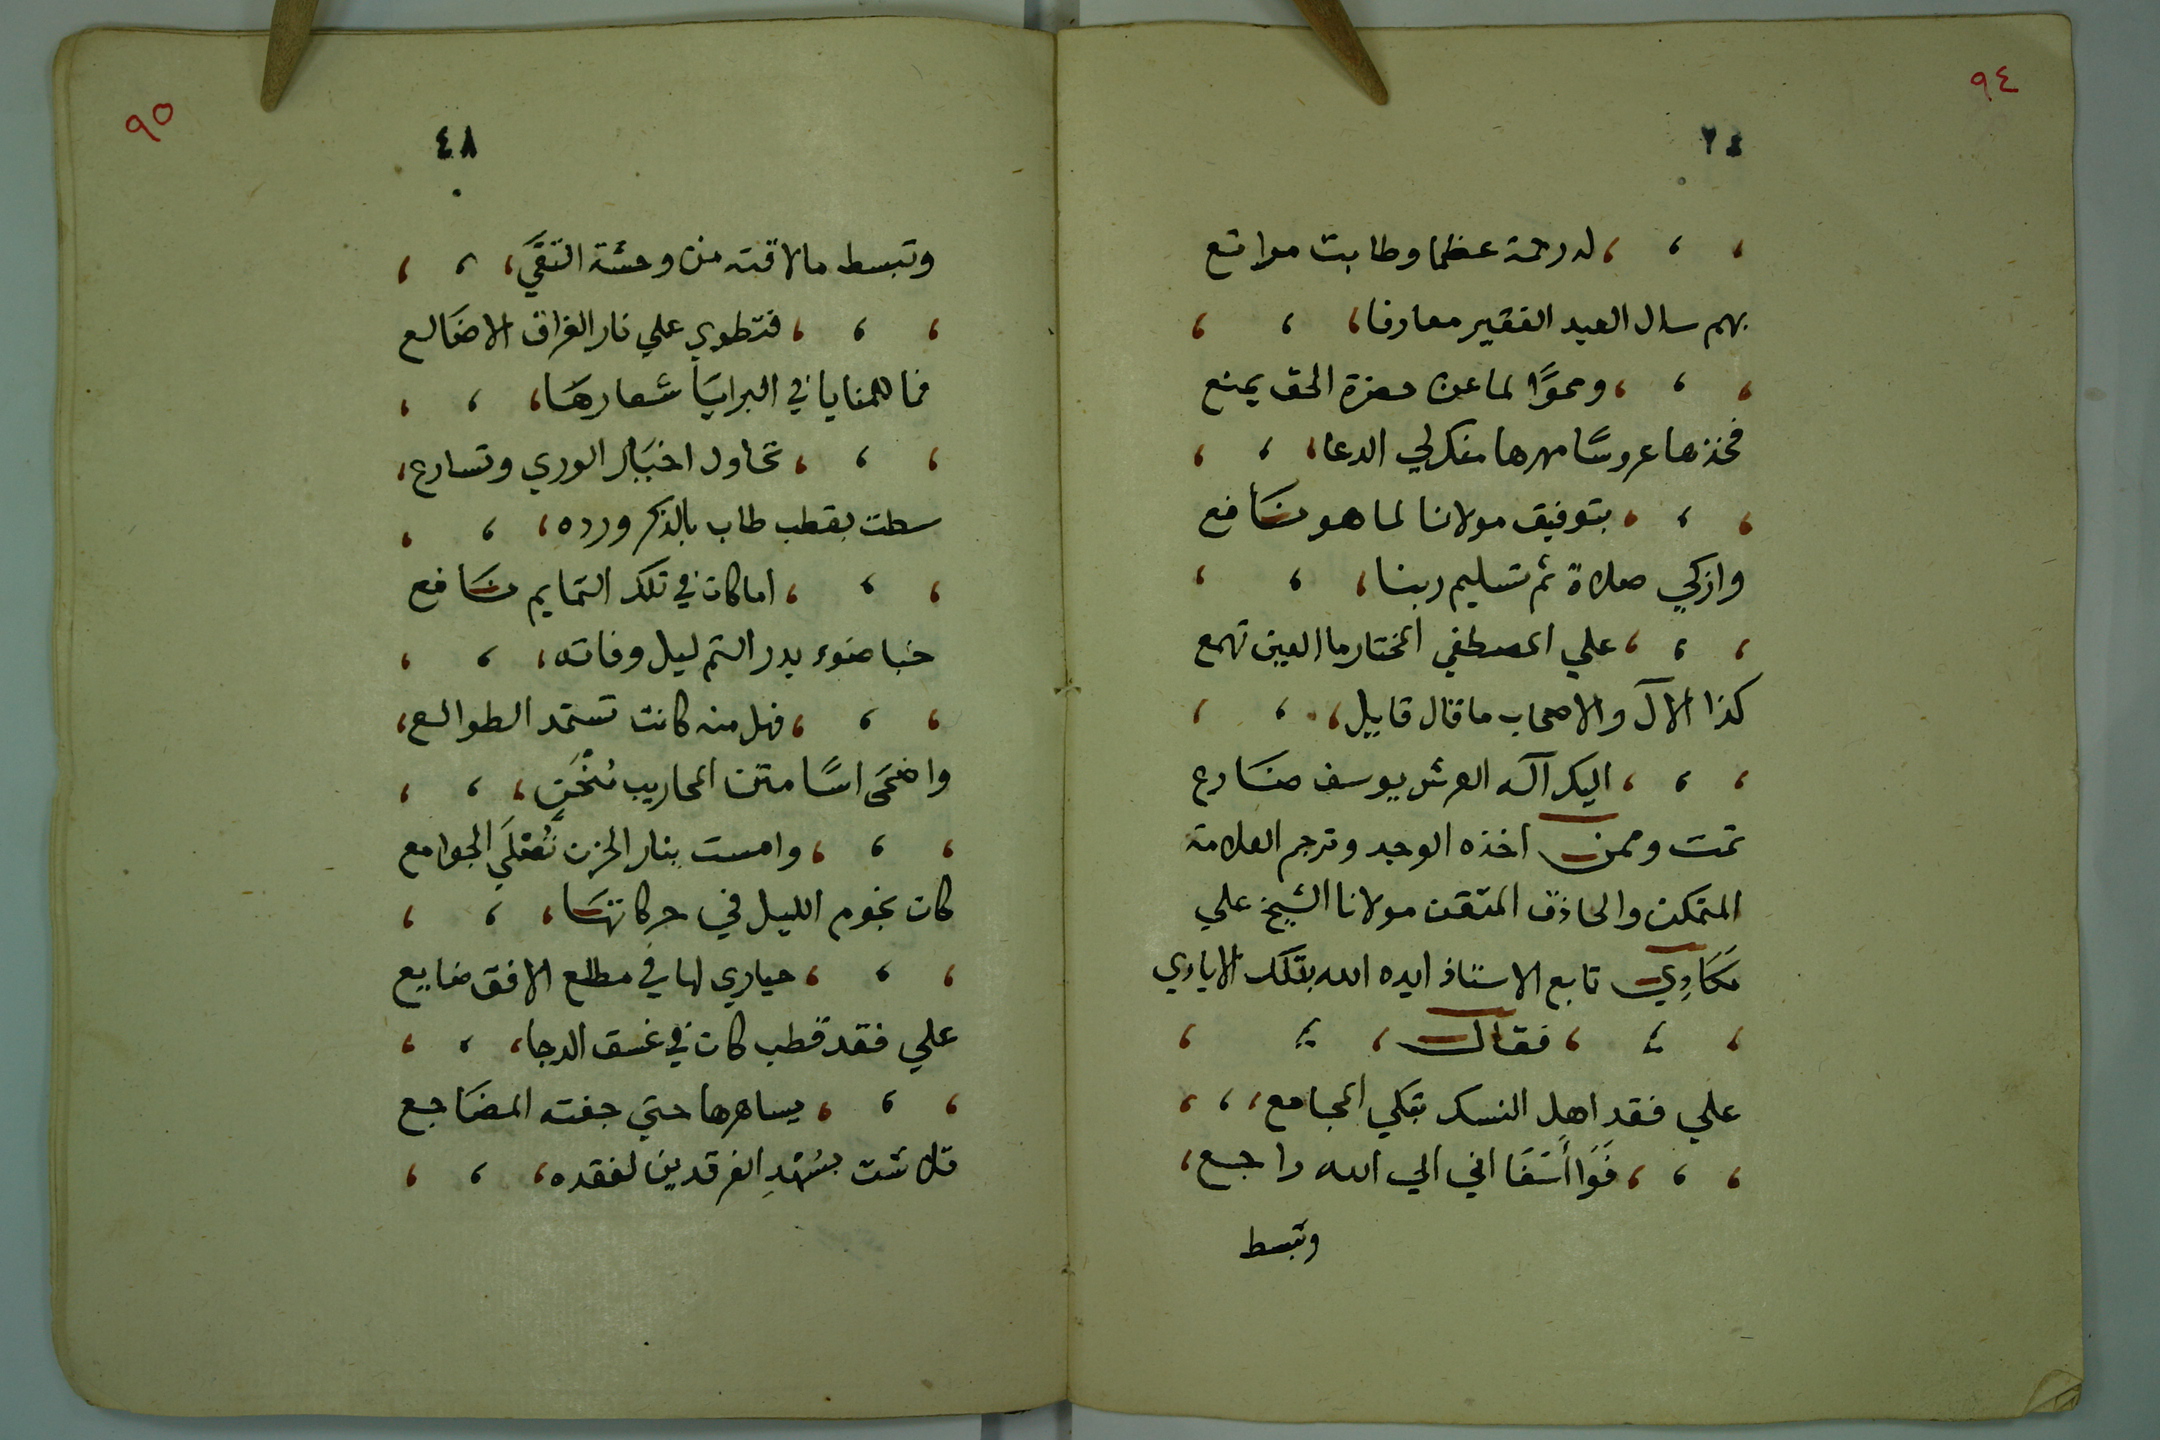 ٩٤
له رحمة عظما وطابت مواقع
بهم سال العبد الفقير معارفا،
ومحوًا لما عن حضرة الحق يمنع
فخذها عروسًا مهرها منكر لي الدعا،
بتوفيق مولانا لما هو نافع
وازكي صلاة ثم تسليم ربنا،
علي المصطفي المختار ما العين تهمع
كذا الآل والاصحاب ما قال قايل،
اليك اله العرش يوسف ضارع
تمت وممن اخذه الوجد وترجم العلامة
المتمكن والحاذق المتقن مولانا الشيخ علي
مَكَاوِي تابع الاستاذ ايده الله بتلك الايادي
فقال
علي فقد اهل النسك تبكي المجامع،
فَوَا أسَفَا اني الي الله راجع،
وتبسط
٩٥
٤٨
وتبسط ما لاقته من وحشة التقَي،
فتطوي علي نار الفراق الاضالع
فما للمنايا في البرايَا شعارهَا،
تحاول اخيَار الوري وتسارع،
سطت بقطب طاب بالذكر ورده،
اما كان في تلك التمايم نافع
خبا ضوء بدر التم ليل وفاته،
فهل منه كانت تستمد الطوالع،
واضحَى اسًا متن المحاريب مُنْحَنٍ،
وامست بنار الحزن تُصْلَي الجوامع
كان نجوم الليل في حركاتهَا،
حياري لها في مطلع الافق ضايع
علي فقد قطب كان في غسق الدجا،
يساهرها حتي جفته المضَاجع
تلاشت بسُهْدِ الفرقدين لفقده،